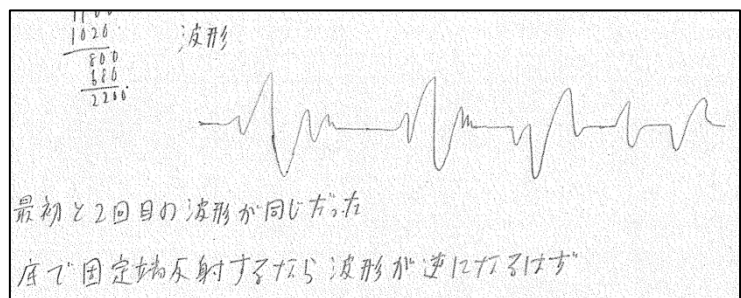 1020.
800
680
2200.
波形
最初と2回目の波形が同じだった
底で固定端反射するなら波形が逆になるはず